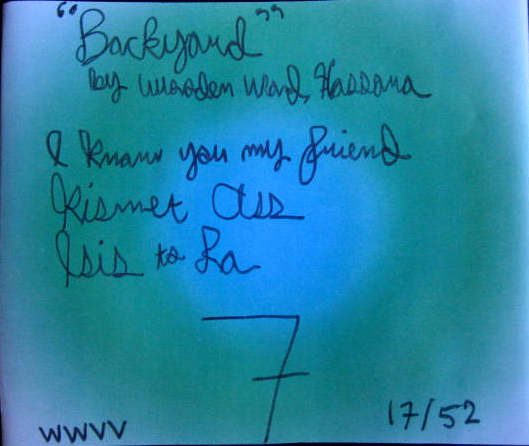 "Backyard"
by Wooden Wand, Hassara
I know you my friend
Kismet Ass
Isis to La
7
WWVV
17/52